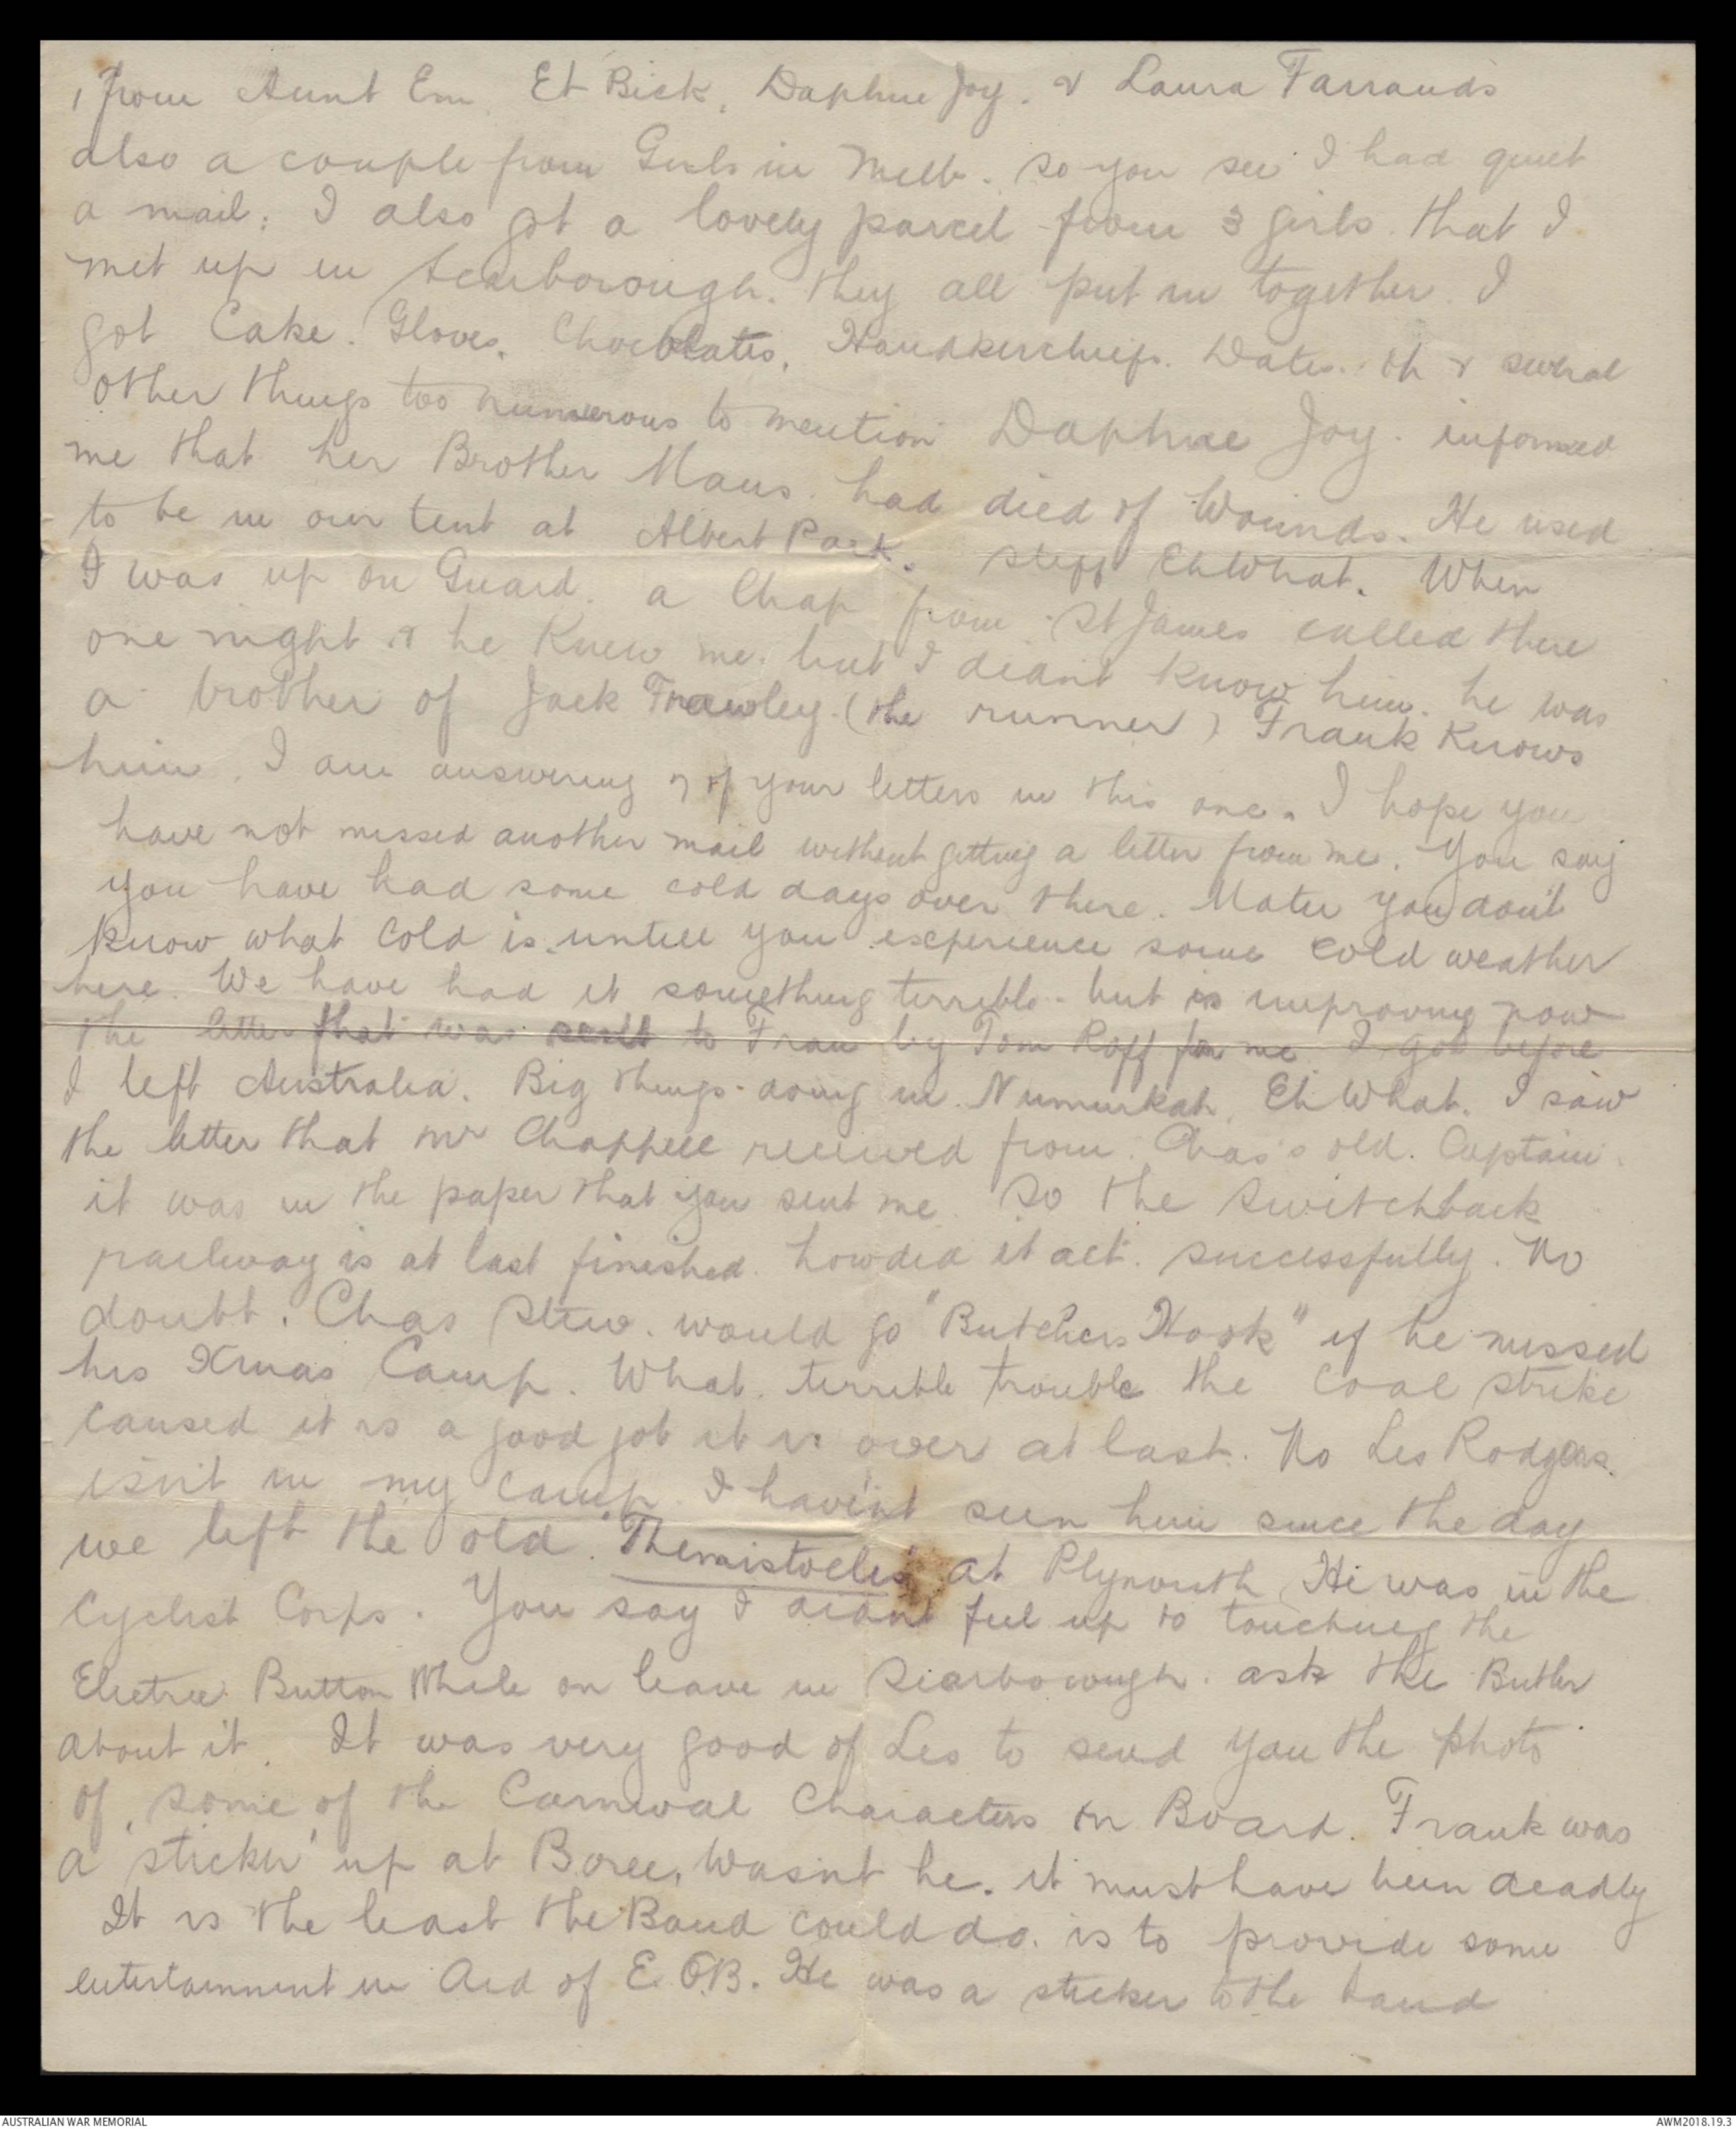 from Aunt Em, Et Bick, Daphne Joy. & Laura Farrands
also a couple from Girls in Melb. so you see I had quiet
a mail; I also got a lovely parcel from 3 girls that I
met up in Scarborough. they all put in together. I
got Cake. Gloves, Chocolates, Handkerchiefs. Dates. oh & several
other things too numerous to mention Daphne Joy. informed
me that her Brother Maus. had died of Wounds. He used
to be in our tent at Albert Park. stiff Eh What. When
I was up on Guard. a Chap from St James called there
one night & he knew me. but I didn't know him. he was
a brother of Jack Trawley. (the runner) Frank knows
him. I am answering 7 of your letters in this one. I hope you
have not missed another mail without getting a letter from me. You say
you have had some cold days over there. Mater you don't
know what cold is untill you experience some cold weather
here. We have had it something terrible. but is improving now
the letter that was sent to Fran by Tom Roff for me I got before
I left Australia. Big things doing in Numurkah, Eh What. I saw
the letter that Mr Chappell received from Chas's old. Captain.
it was in the paper that you sent me. So the switchback
railway is at last finished. how did it act. successfully. No
doubt. Chas Stew. would go "Butchers Hook" if he missed
his Xmas Camp. What. terrible trouble the coal strike
caused it is a good job it is over at last. No Les Rodgers
isn't in my camp. I havin't seen him since the day
we left the old "Themistocles" at Plymouth He was in the
Cyclist Corps. You say I didn't feel up to touching the
Electric Button while on leave in Scarborough. ask the Butler
about it. It was very good of Les to send you the photo
of some of the Carnival Characters on Board. Frank was
a 'sticker' up at Boree, Wasn't he. it must have been deadly
It is the least the Band could do. is to provide some
entertainment in Aid of E. O.B. He was a sticker to the band
AUSTRALIAN WAR MEMORIAL
AWM2018.19.3